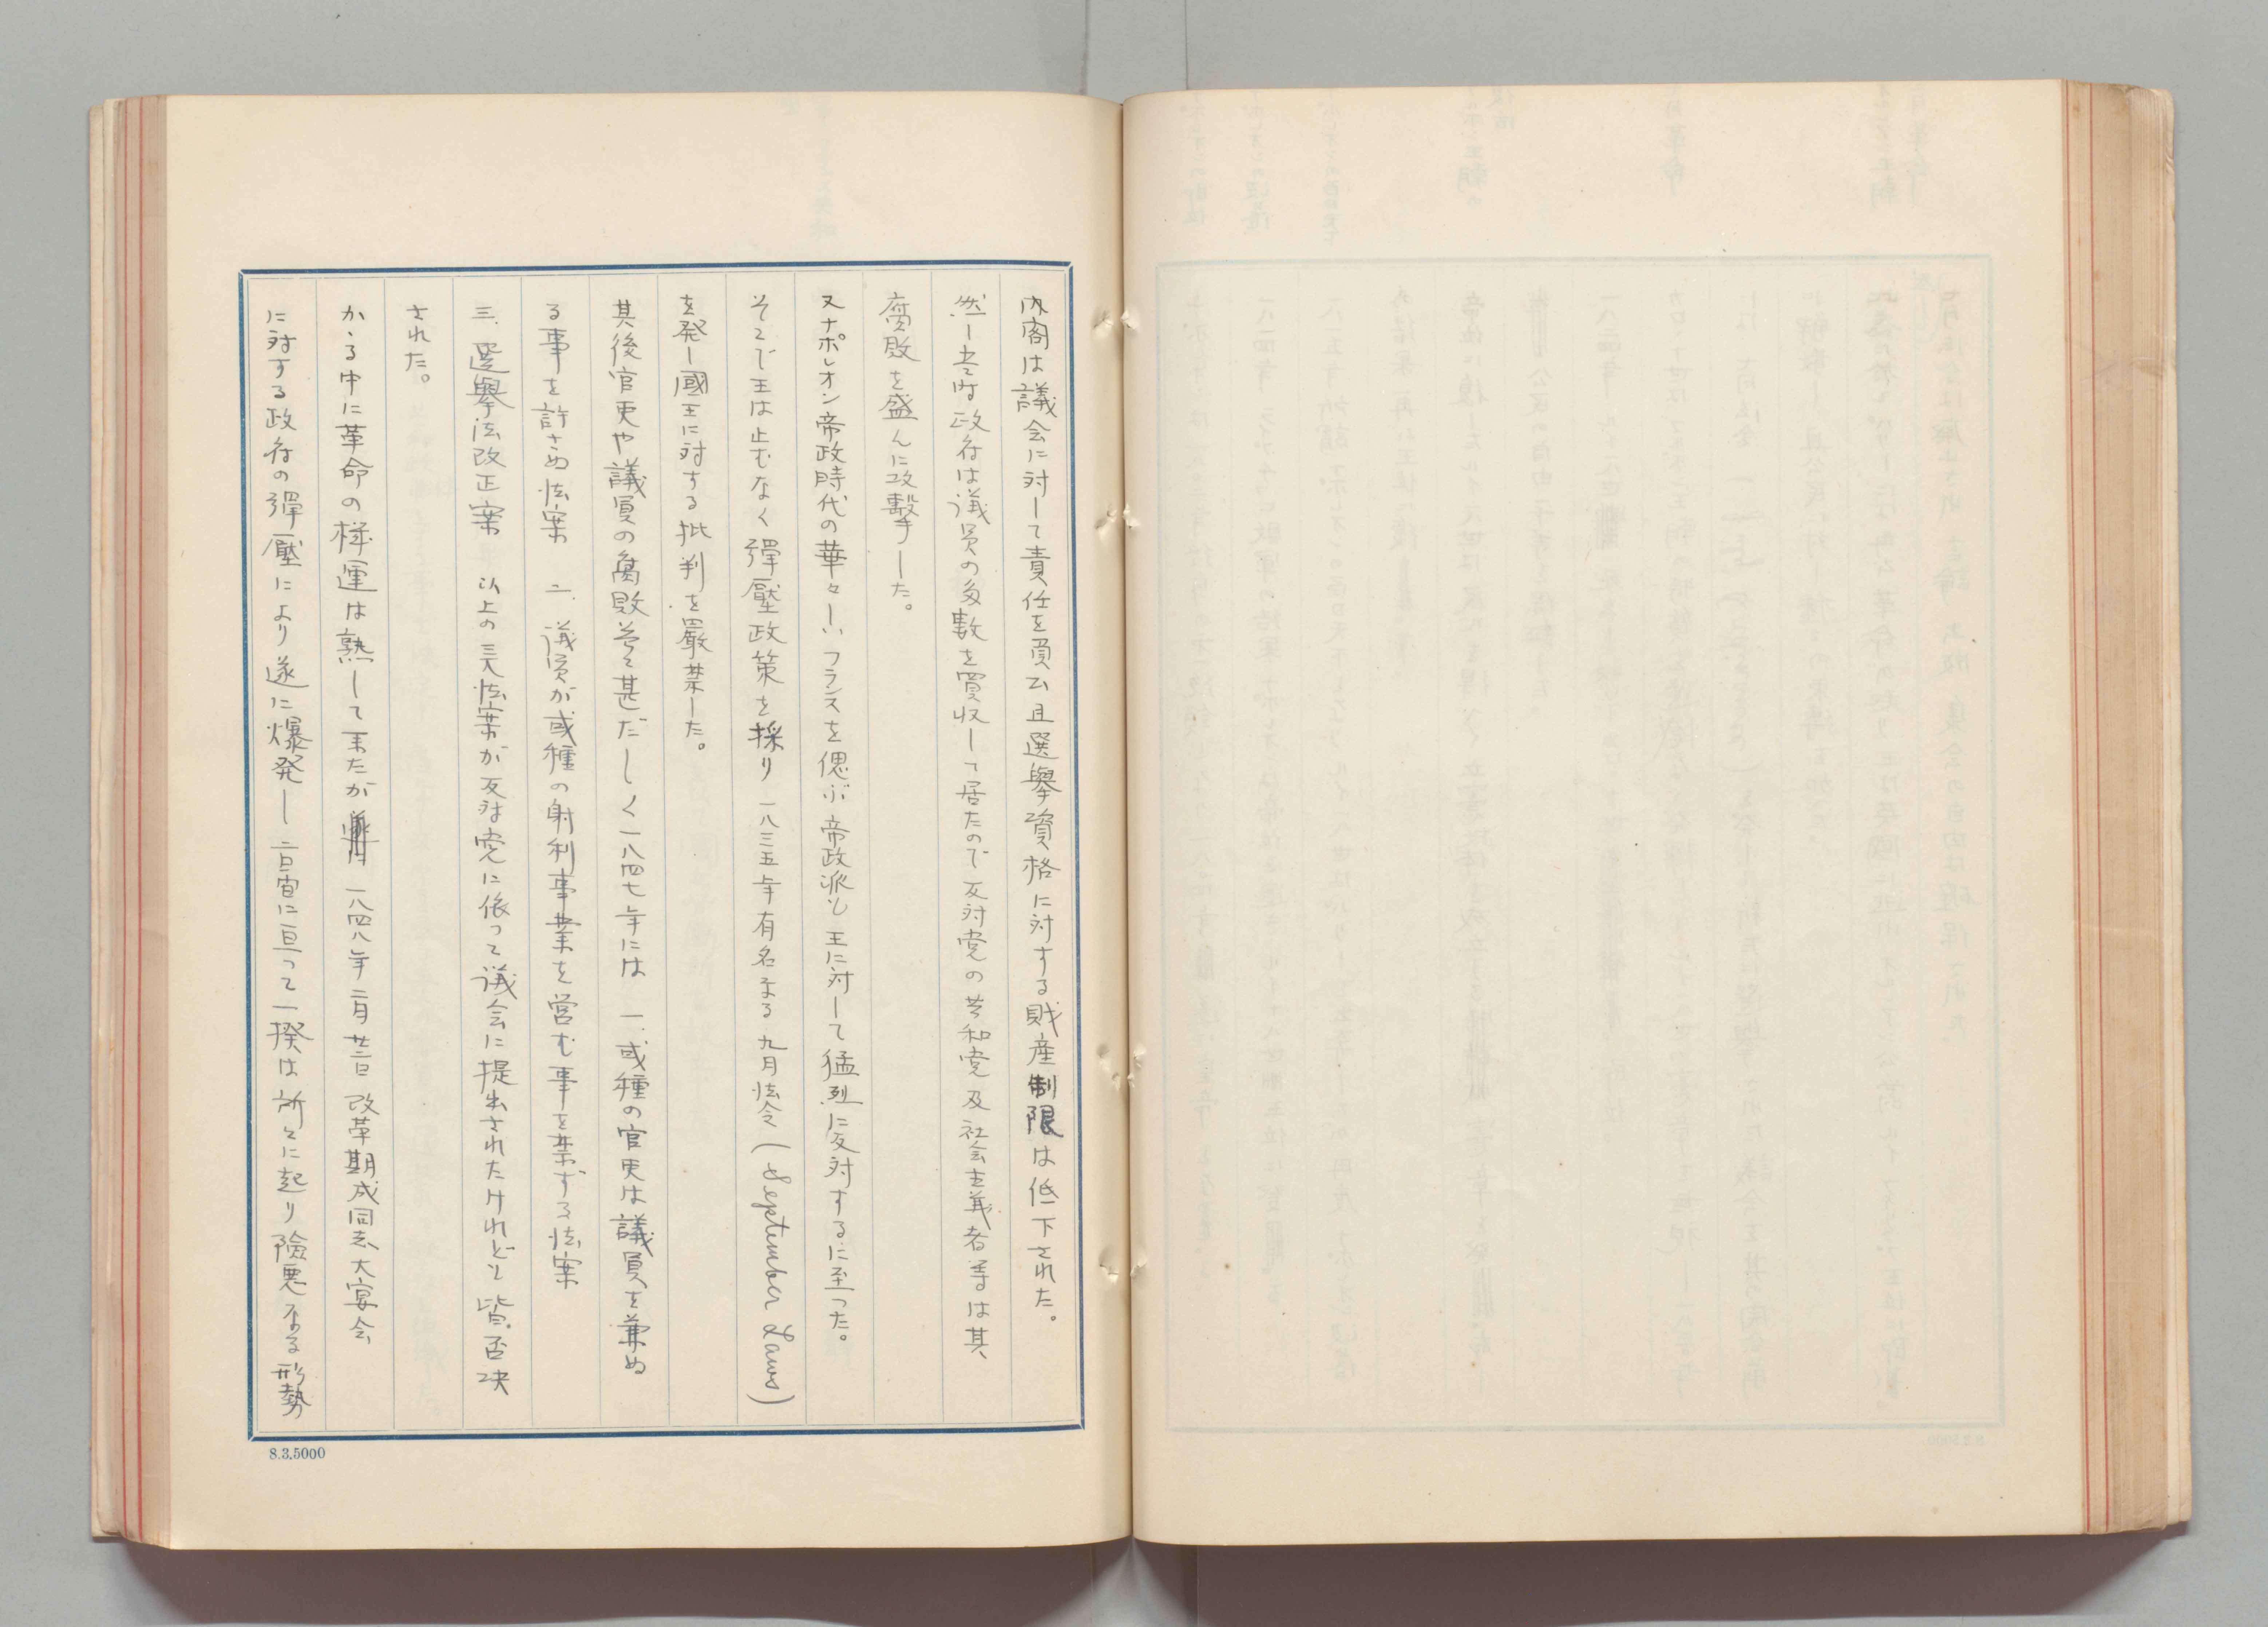 内閣は議会に対して責任を負ひ且選擧資格に対する財産制限は低下された。
然し当時政府は議員の多数を買収して居たので反対党の共和党及社会主義者等は其
腐敗を盛んに攻擊した。
又ナポレオン帝政時代の華々しいフランスを偲ぶ帝政派も王に対して猛烈に反対するに至った。
そこで王は止むなく彈壓政策を採り一八三五年有名なる九月法令(September Laws)
を発し國王に対する批判を嚴禁した。
其後官吏や議員の腐敗益々甚だしく一八四七年には 一、或種の官吏は議員を兼ぬ
る事を許さぬ法案 二、議員が或種の射利事業を営む事を禁ずる法案
三、選擧法改正案 以上の三大法案が反対党に依って議会に提出されたけれども皆否決
された。
かゝる中に革命の機運は熟して来たが 一八四八年二月廿二日改革期成同志大宴会
に対する政府の彈壓により遂に爆発し 二日間に亘って一揆は所々に起り險悪なる形勢
8.3.5000